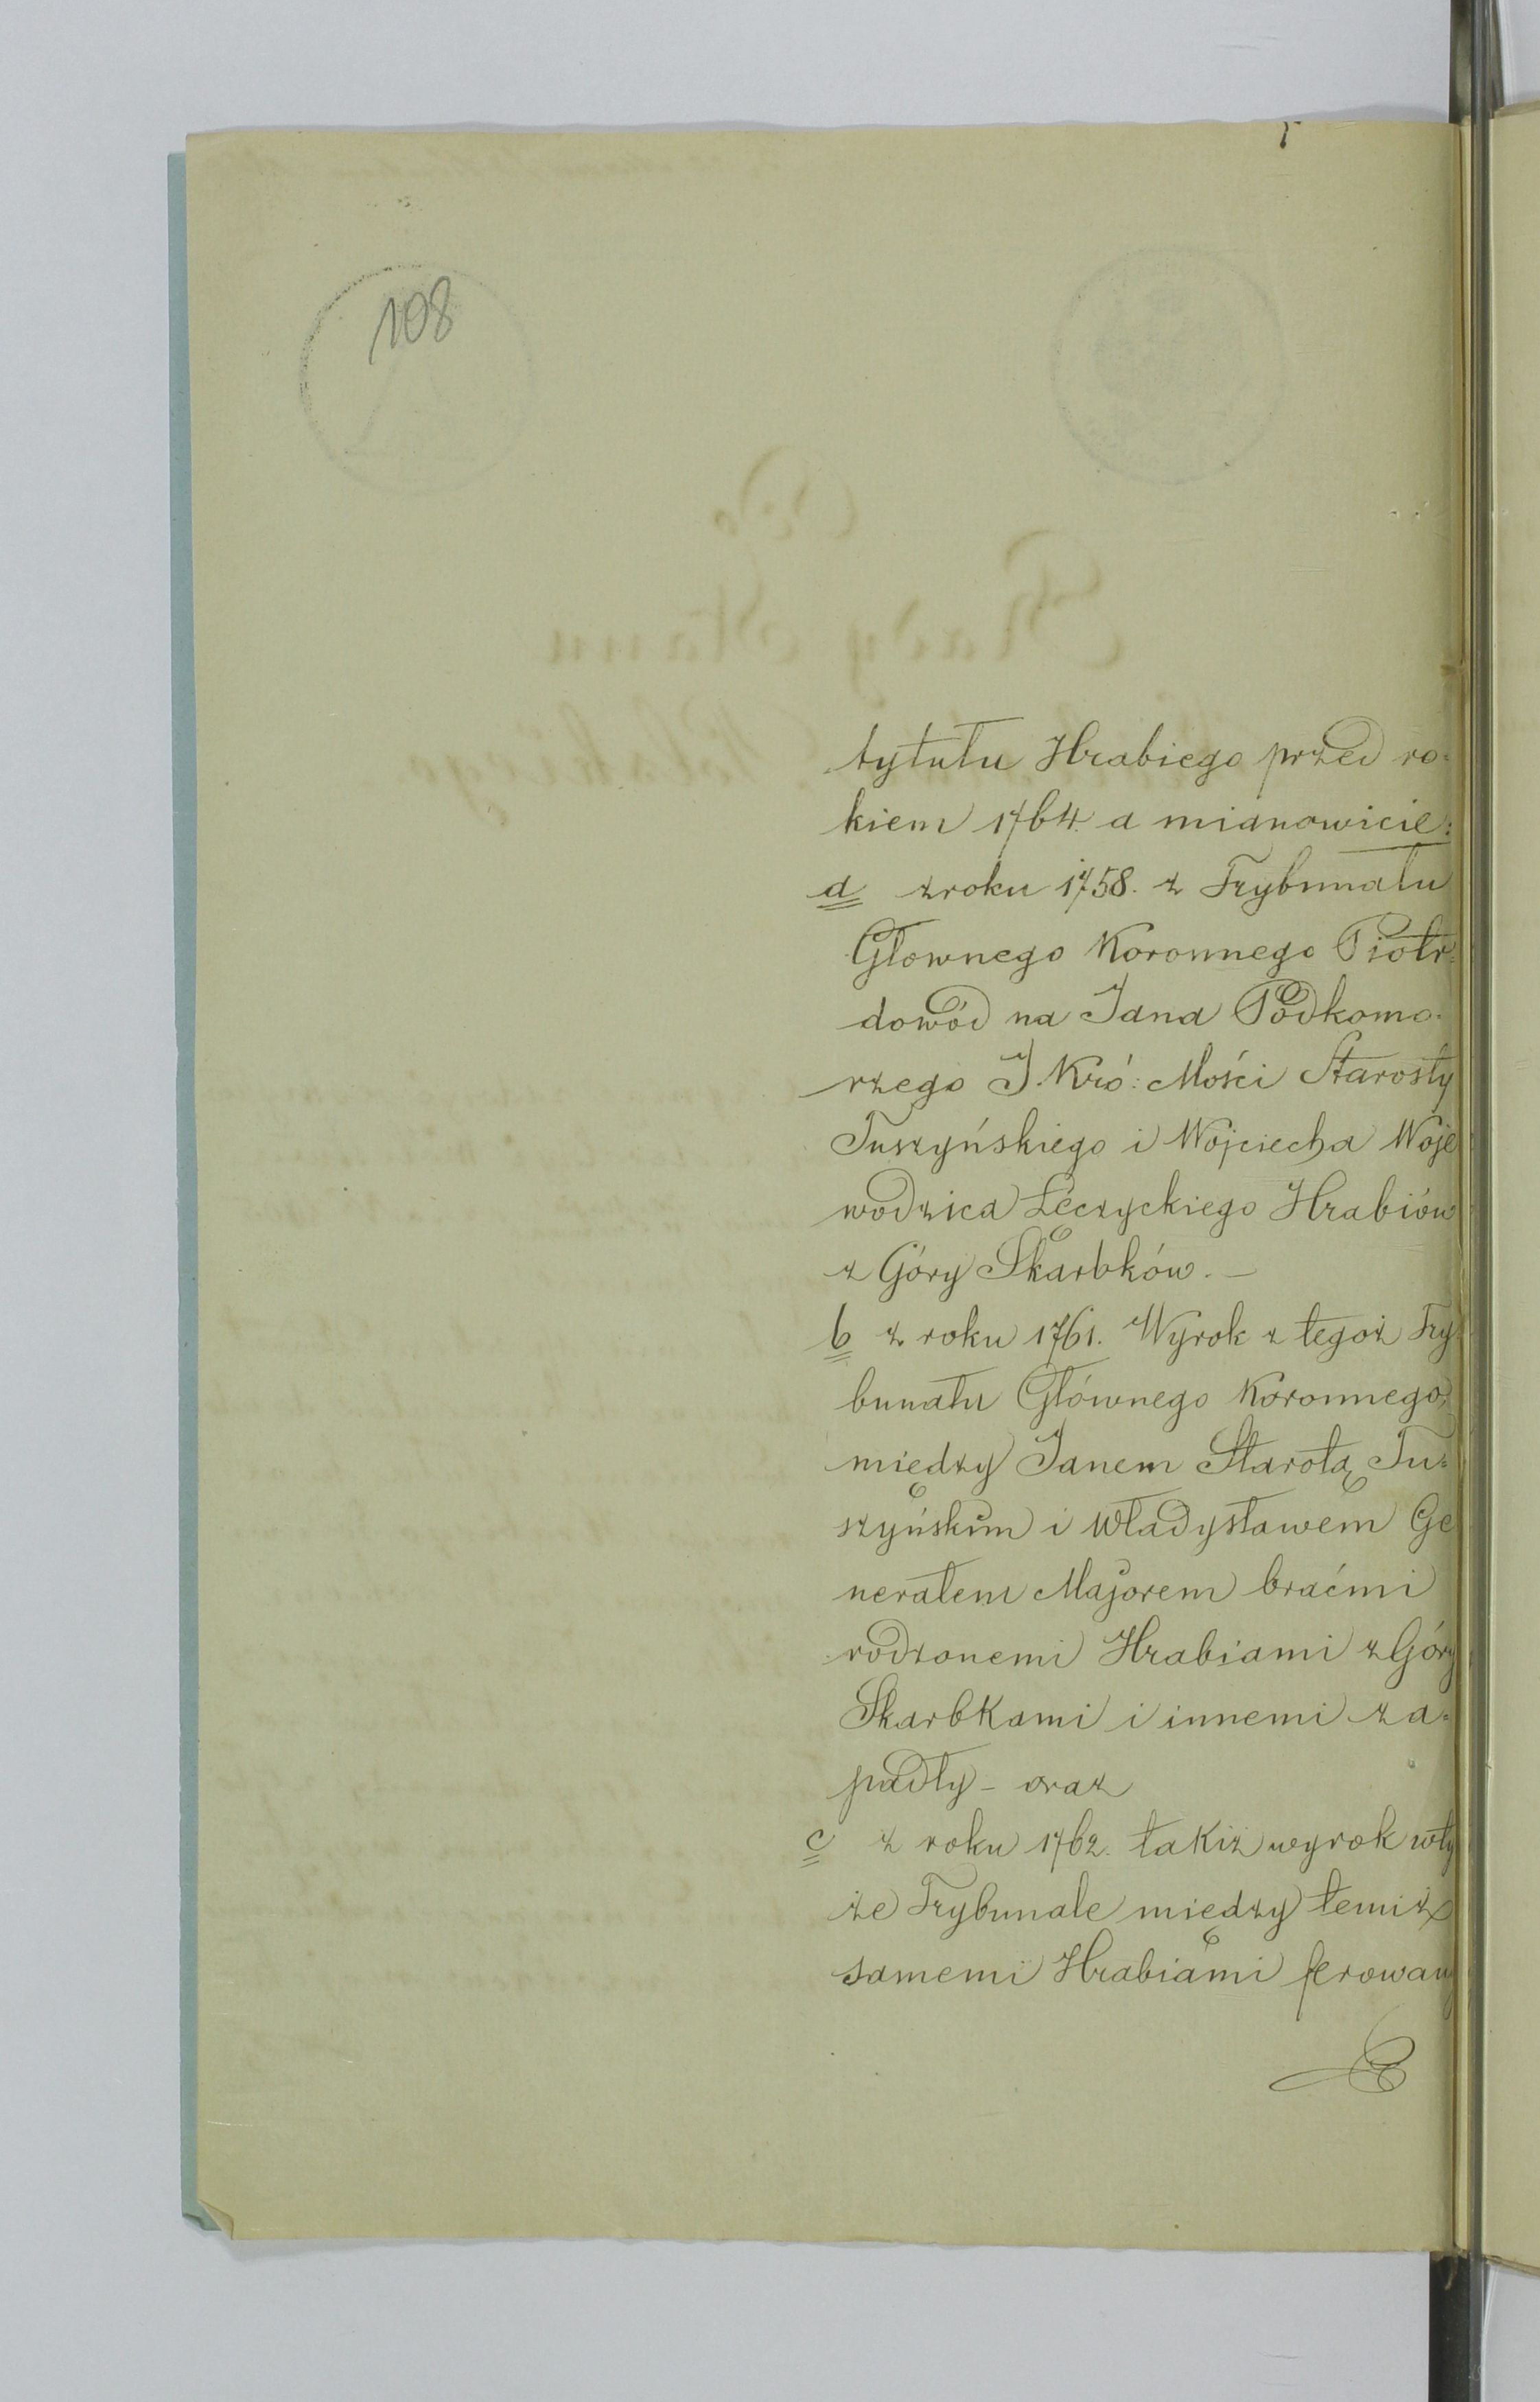 108
tytułu Hrabiego przed ro=
kiem 1764. a mianowicie:
a z roku 1758. z Trybunału
Głownego Koronnego Piotr:
dowód na Jana Podkomo=
rzego J. Kró: Mości Starosty
Tuszyńskiego i Wojciecha Woje
wodzica Łęczyckiego Hrabiów
z Góry Skarbków. —
b z roku 1761. Wyrok z tegoż Try
bunału Głównego Koronnego,
między Janem Starotą Tu=
szyńskim i Władysławem Ge
nerałem Majorem braćmi
rodzonemi Hrabiami z Góry
Skarbkami i innemi za=
padły – oraz
c z roku 1762. takiż wyrok w ty
że Trybunale między temiż
samemi Hrabiami ferowany